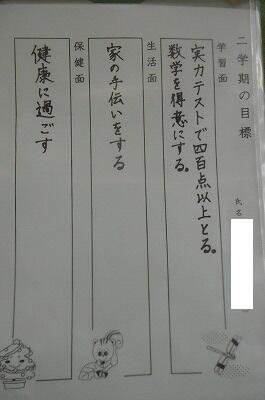 二学期の目標
氏名
学習面
実力テストで四百点以上とる。
数学を得意にする。
生活面
家の手伝いをする
保健面
健康に過ごす